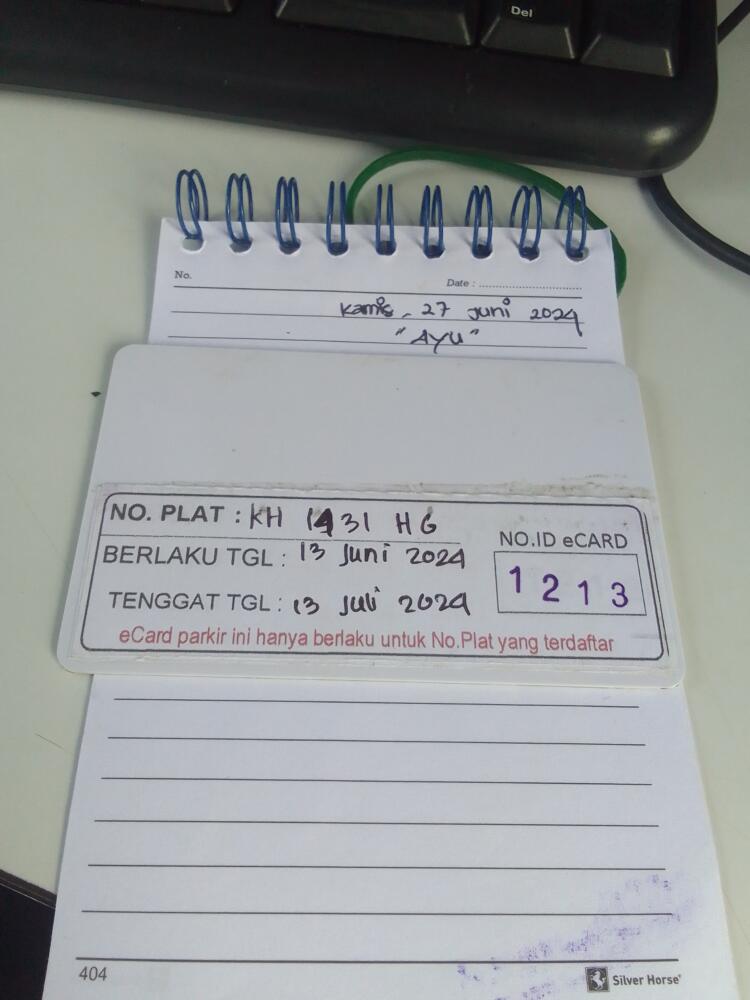 Del
No.
Date :
Kamis, 27 Juni 2024
"AYU"
NO. PLAT : KH 1431 HG
BERLAKU TGL : 13 Juni 2024
TENGGAT TGL : 13 Juli 2024
NO.ID eCARD
1 2 1 3
eCard parkir ini hanya berlaku untuk No.Plat yang terdaftar
404
Silver Horse